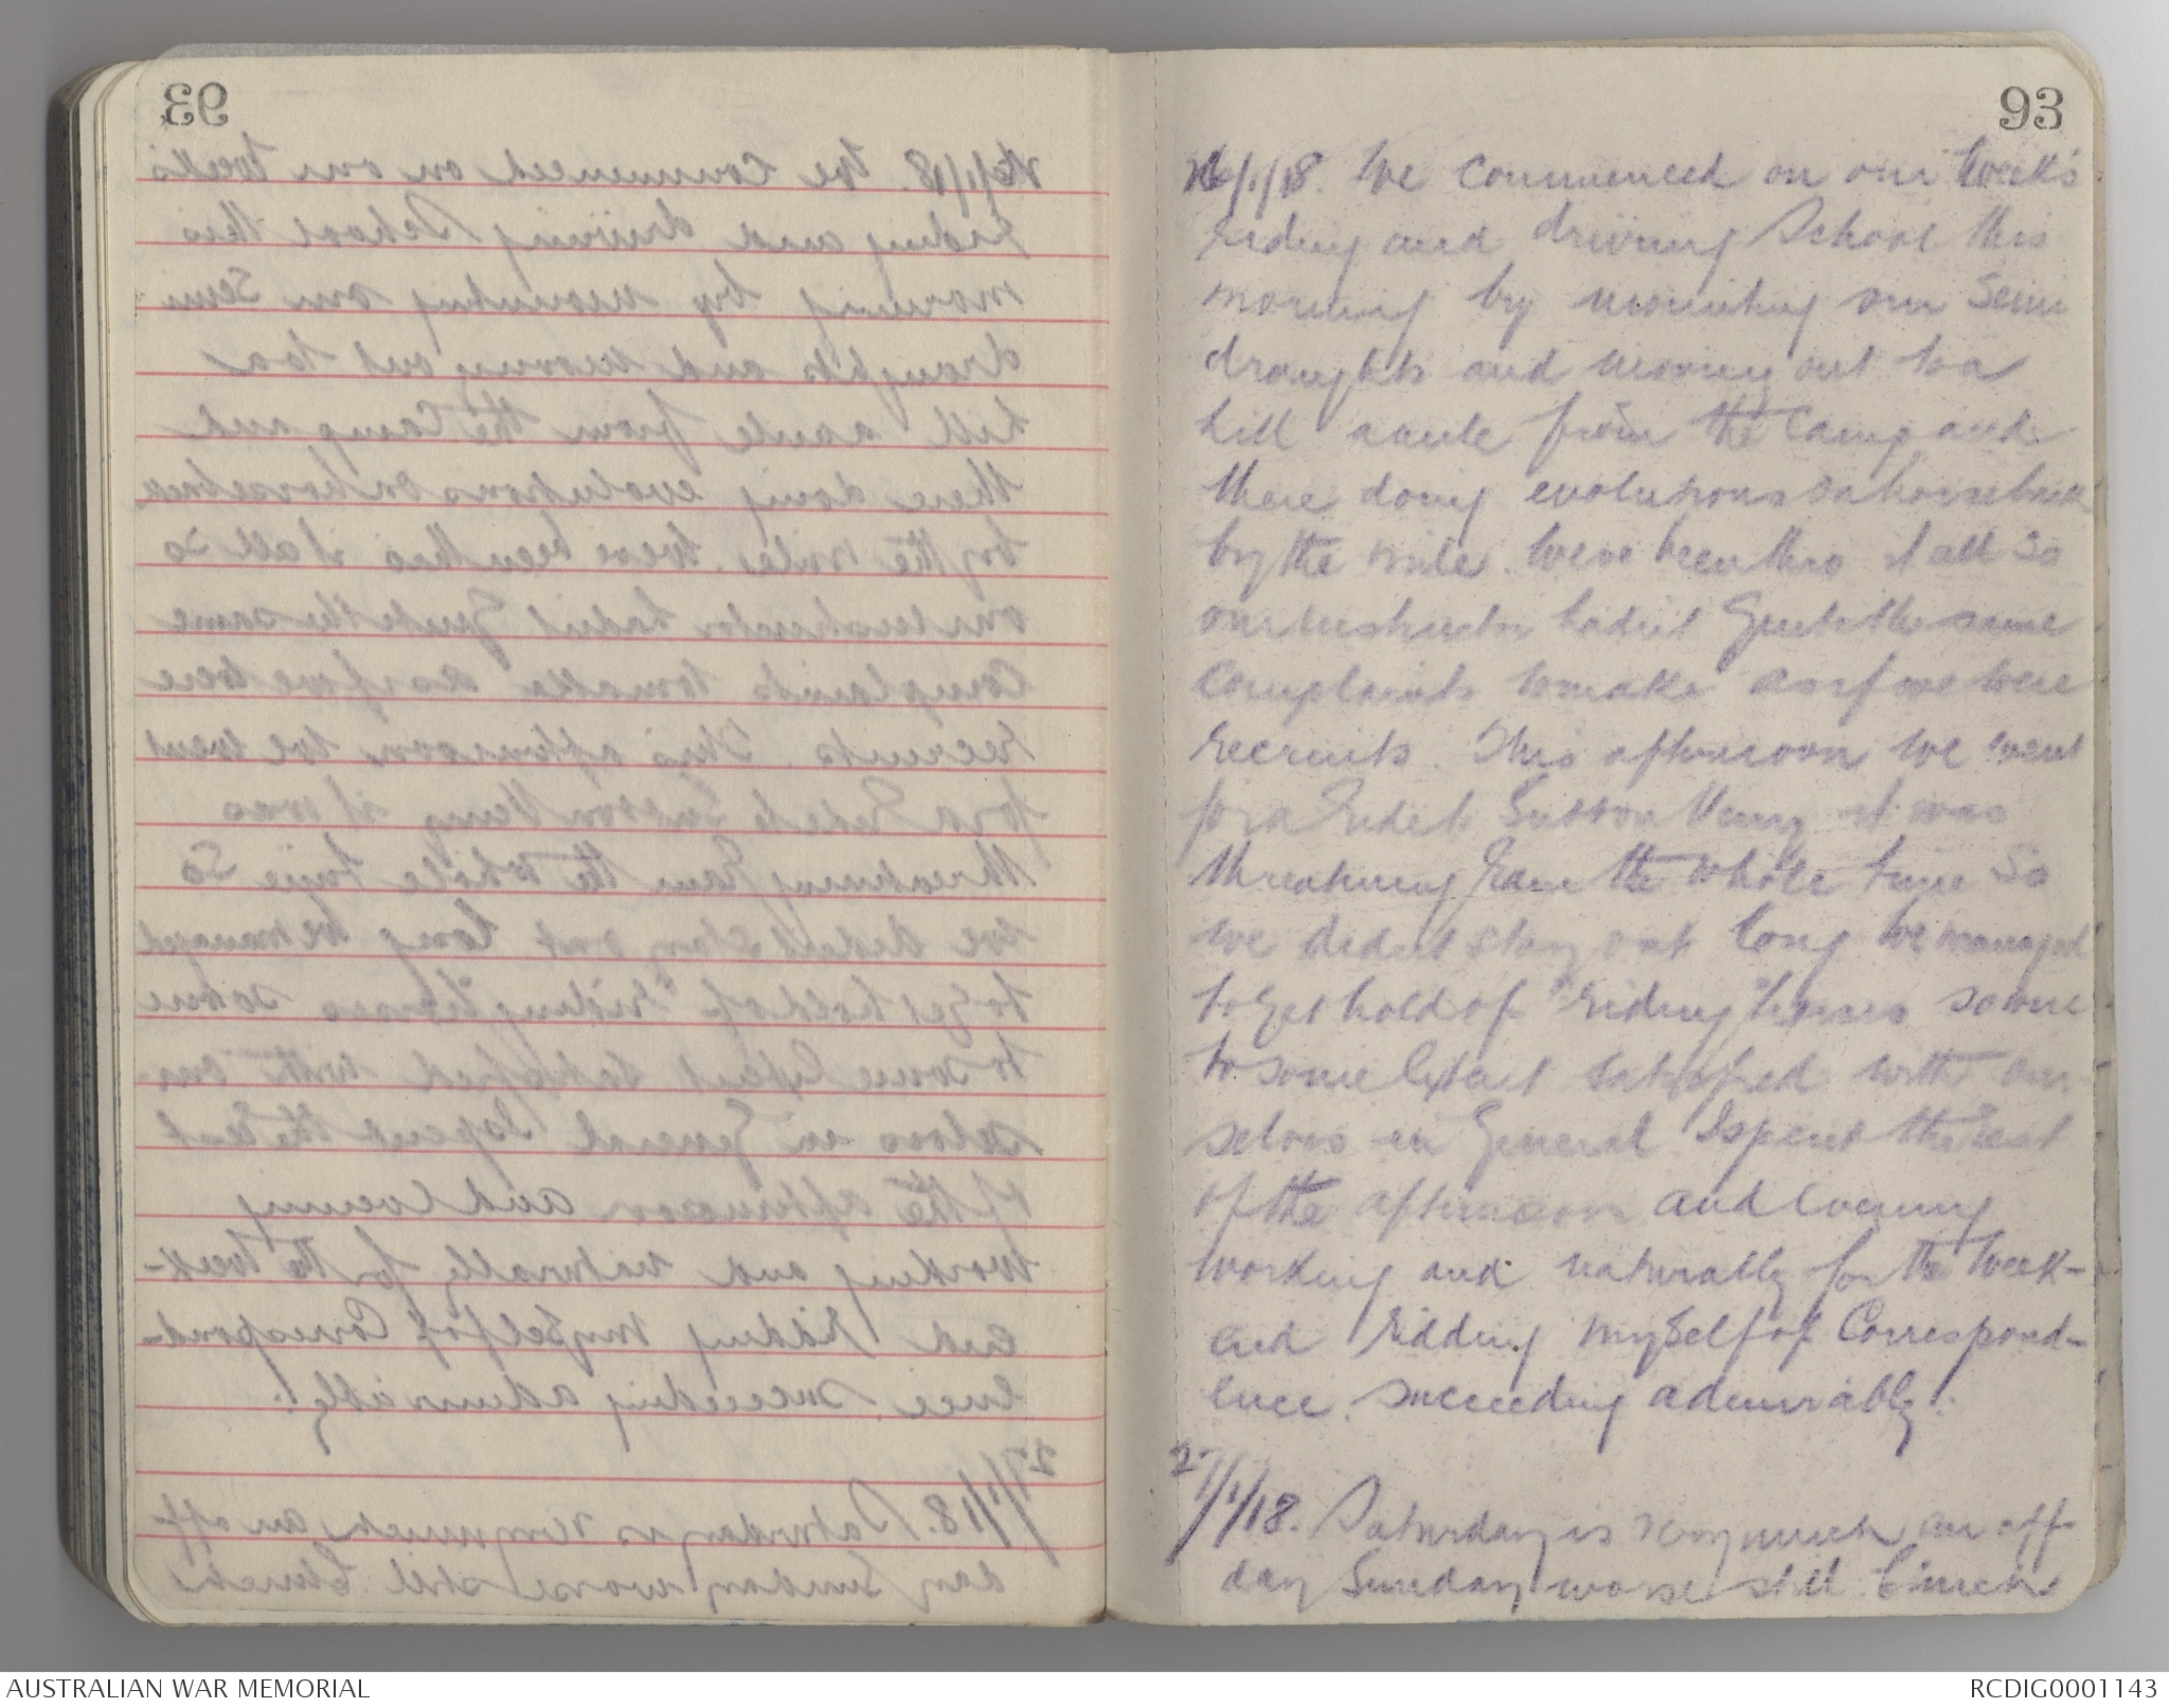 93
26/1/18. We commenced on our week's
riding and driving School this
morning by mounting our Semi
draughts and moving out to a
hill a mile from the Camp and
there doing evolutions on horseback
by the mile. Weve been thro it all so
our instructor hadnt Quite the same
complaints to make as if we were
recruits. This afternoon we went
for a Ride to Sutton Veny it was
threatening Rain the whole time So
we didnt stay out long We managed
to get hold of "riding" horses so were
to some Extent satisfied with our-
selves in General I spent the rest
of the afternoon and Evening
working and naturally for the Week-
end Ridding myself of Correspond-
ence. succeeding admirably!
27/1/18. Saturday is very much an off
day Sunday worse still. Church
AUSTRALIAN WAR MEMORIAL
RCDIG0001143